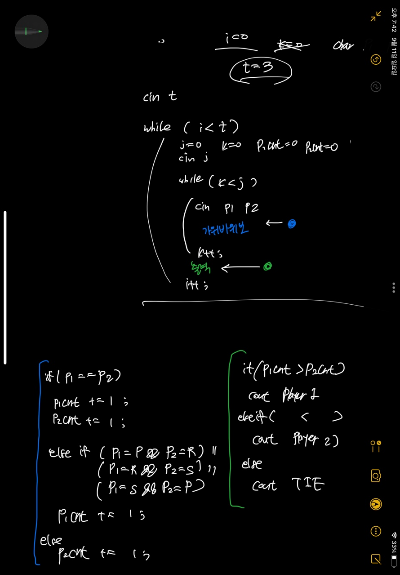 i=0 k=0 char
t=3
cin t
while (i<t)
j=0 k=0 p1cnt=0 p2cnt=0
cin j
while (k<j)
cin p1 p2
가위바위보 ←
k++;
출력 ←
i++;
if(p1==p2)
p1cnt += 1;
p2cnt += 1;
else if (p1=P && p2=R) ||
(p1=R && p2=S) ||
(p1=S && p2=P)
p1cnt += 1;
else
p2cnt += 1;
if(p1cnt >p2cnt)
cout player 1
else if( < )
cout player 2)
else
cout TIE
오후 7:42 9월 11일 일요일
33%